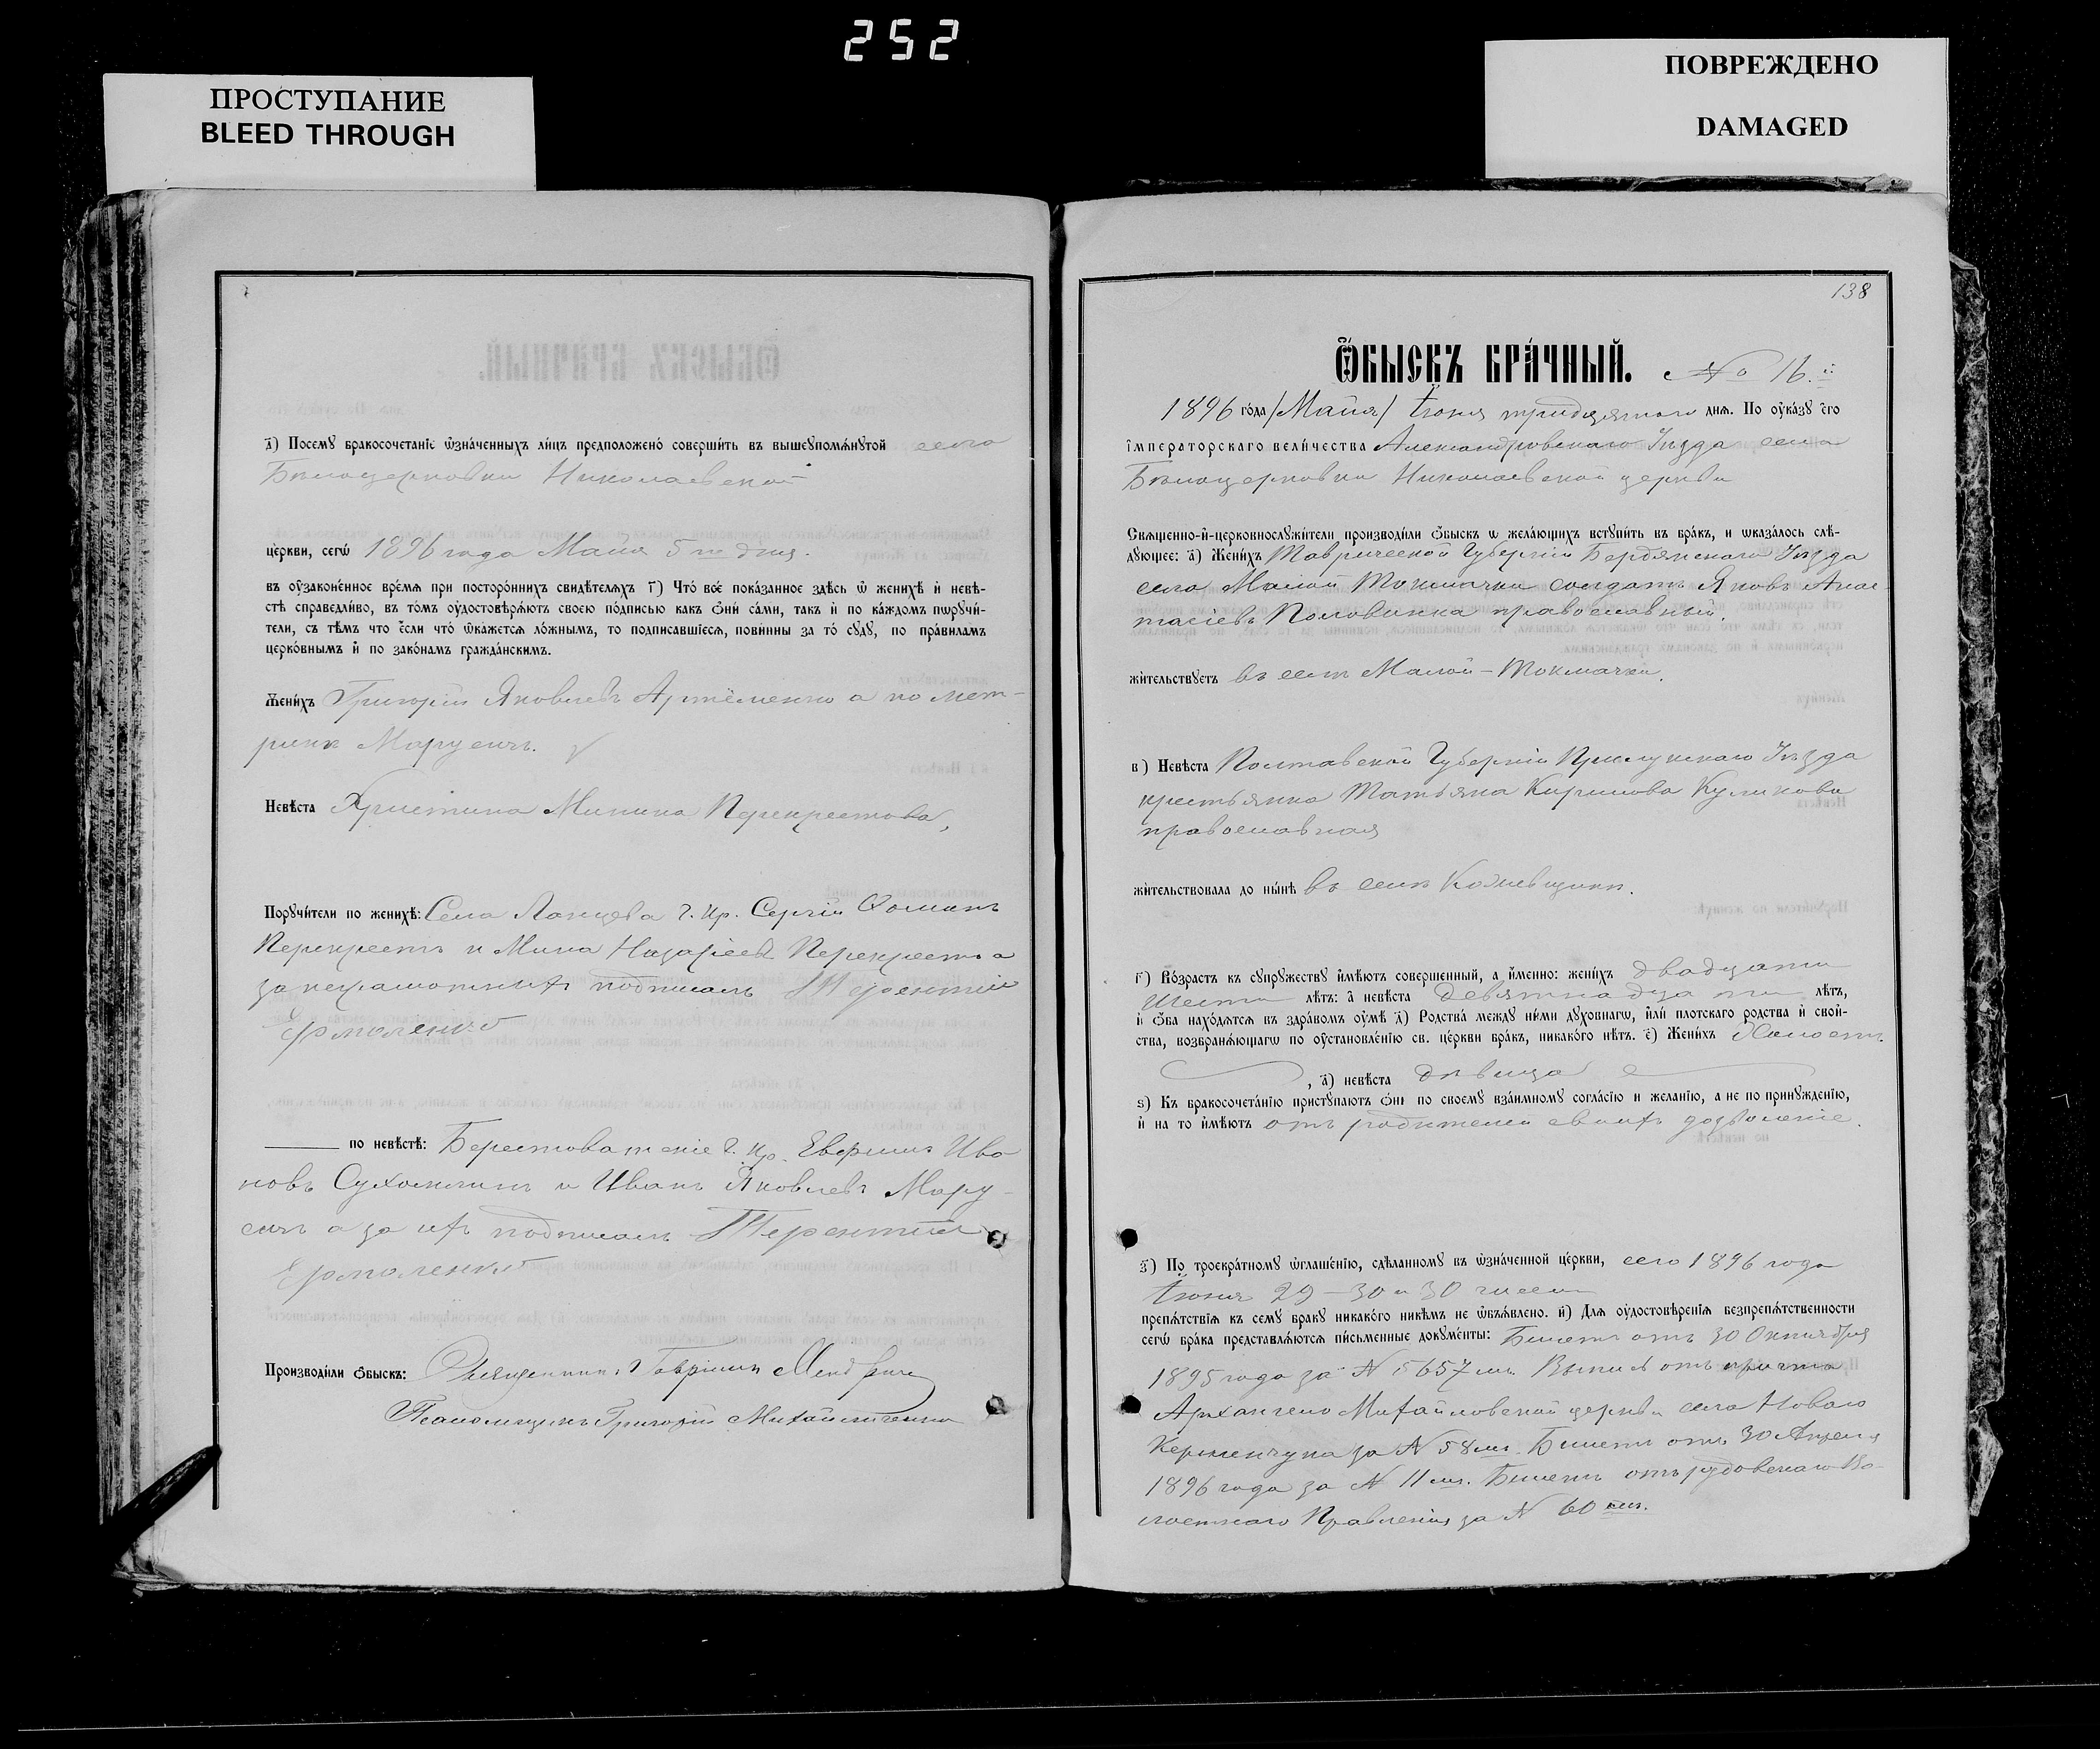 252
ПРОСТУПАНИЕ
BLEED THROUGH
ПОВРЕЖДЕНО
DAMAGED
д҃) Посемꙋ бракосочетаніе ѡзна́ченныхъ ли́цъ предположено̀ соверши́ть въ вышеꙋпомѧ́нꙋтой села
Бѣлоцерковки Николаевской
це́ркви, сегѡ̀ 1896 года Маія 5 го дня.
въ оу҆законе́нное вре́мѧ при посторо́ннихъ свидѣ́телѧхъ г҃) Что̀ все́ пока́занное здѣ́сь ѡ женихѣ̀ и҆ невѣ́-
стѣ справедли́во, въ то́мъ оу҆достовѣрѧ́ютъ своею по́дписью какъ ѻ҆нѝ са́ми, такъ и҆ по ка́ждомъ пѡрꙋчи́-
тели, съ тѣ́мъ что е҆́сли что̀ ѡ҆ка́жетсѧ ло́жнымъ, то подписа́вшїесѧ, пови́нны за то̀ сꙋдꙋ̀, по пра́виламъ
церко́внымъ и҆ по зако́намъ гражда́нскимъ.
Жени́хъ Григорій Яковлевъ Артёменко а по мет-
рикѣ Марусичъ.
Невѣ́ста Христина Минина Перекрестова,
Порꙋчи́тели по женихѣ̀: Села г. кр. Сергій Ѳоминъ
Перекрестъ и Мина Назаріевъ Перекрестъ а
за неграмотныхъ подписалъ Терентій
Ермоленко
по невѣ́стѣ: Берестоватскіе г. кр. Ива-
новъ Сухомлинъ и Иванъ Яковлевъ Мару-
сичъ а за ихъ подписалъ Терентій
Ермоленко
Производи́ли ѻ҆́быскъ: Священникъ Гавріилъ
Псаломщикъ Григорій Михайличенко
138
Ѻ҆́БЫСКЪ БРА́ЧНЫЙ. № 16. й
1896 го́да /Маія/ Іюня тридцятаго днѧ. По оу҆ка́зꙋ є҆гѡ̀
і҆мператорскаго вели́чества Александровскаго Уѣзда села
Бѣлоцерковки Николаевской церкви
Свѧщенно-и҆-церковнослꙋжи́тели производи́ли ѻ҆́быскъ ѡ жела́ющихъ встꙋпи́ть въ бра́къ, и ѡказа́лось слѣ́-
дꙋющее: а҃) Жени́хъ Таврической Губерніи Бердянскаго Уѣзда
села Малой Токмачки солдатъ Яковъ Анас-
тасіевъ Половинка православный.
жи́тельствꙋетъ въ селѣ Малой-Токмачки.
в҃) Невѣ́ста Полтавской Губерніи Прилукскаго Уѣзда
крестьянка Татьяна Кирилова Куликова
православная
жи́тельствовала до ны́нѣ въ селѣ
г҃) Во́зрастъ къ сꙋпрꙋжествꙋ и҆мѣ́ютъ соверше́нный, а и҆́менно: жени́хъ двадцати
шести лѣ́тъ: а҆ невѣ́ста девятнадцати лѣ́тъ,
и҆ ѻ҆́ба нахо́дѧтсѧ въ здра́вомъ оу҆мѣ̀ д҃) Родства̀ междꙋ ни́ми дꙋхо́внагѡ, и҆лѝ плотскаго родства̀ и҆ свой-
ства, возбранѧ́ющагѡ по оу҆становле́нїю св. це́ркви бра́къ, никако́го нѣ́тъ. е҃) Жени́хъ холостъ.
, а҃) невѣ́ста дѣвица
ѕ҃) Къ бракосочета́нїю пристꙋпа́ютъ ѻ҆нѝ по своемꙋ̀ взаи́мномꙋ согла́сїю и жела́нїю, а не по принꙋжде́нїю,
и҆ на то и҆мѣ́ютъ отъ родителей своихъ дозволеніе.
з҃) По̀ троекра́тномꙋ ѡ҆глаше́нїю, сдѣ́ланномꙋ въ ѡзна́ченной це́ркви, сего 1896 года
Іюня 29-30 и 30 числъ
препѧ́тствїѧ къ семꙋ̀ бракꙋ никако́го никѣ́мъ не ѡбъѧ́влено. и҃) Длѧ оу҆достовѣ́ренїѧ безпрепѧ́тственности
сегѡ̀ бра́ка представлѧ́ютсѧ пи́сьменные докꙋме́нты: Билетъ отъ 30 Октября
1895 года за № 5657 мъ. Выпись отъ причта
Архангело Михайловской церкви села Новаго
Керменчука за № 58 мъ. Билетъ отъ 30 Апреля
1896 года за № 11 мъ. Билетъ отъ Рудовскаго Во-
лостнаго Правленія за № 60 мъ.